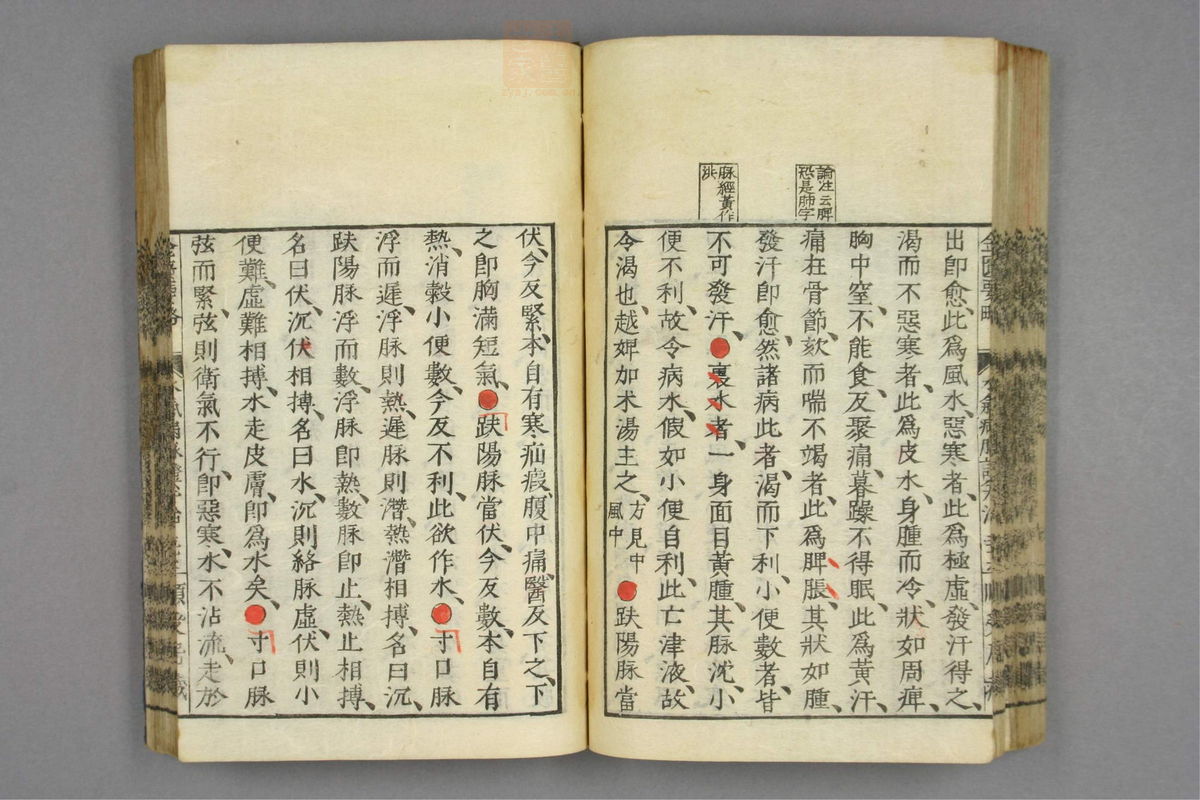 論注云脾
恐是肺字
脉經黃作
洪
出卽愈、此爲風水、惡寒者、此爲極虛、發汗得之、
渴而不惡寒者、此爲皮水、身腫而冷、狀如周痺、
胸中窒、不能食、反聚痛、暮躁不得眠、此爲黃汗、
痛在骨節、欬而喘不竭者、此爲脾脹、其狀如腫、
發汗卽愈、然諸病此者、渴而下利、小便數者、皆
不可發汗、●裏水者、一身面目黃腫、其脉沈小
便不利、故令病水、假如小便自利、此亡津液、故
令渴也、越婢加朮湯主之、方見中風中●趺陽脉當
伏、今反緊、本自有寒、疝瘕、腹中痛、醫反下之、下
之卽胸滿短氣、●趺陽脉當伏、今反數、本自有
熱、消穀小便數、今反不利、此欲作水、●寸口脉
浮而遲、浮脉則熱、遲脉則潛、熱潛相搏、名曰沉、
趺陽脉浮而數、浮脉卽熱、數脉卽止、熱止相搏、
名曰伏、沉伏相搏、名曰水、沉則絡脉虛、伏則小
便難、虛難相搏、水走皮膚、卽爲水矣、●寸口脉
弦而緊、弦則衛氣不行、卽惡寒、水不沾流、走於